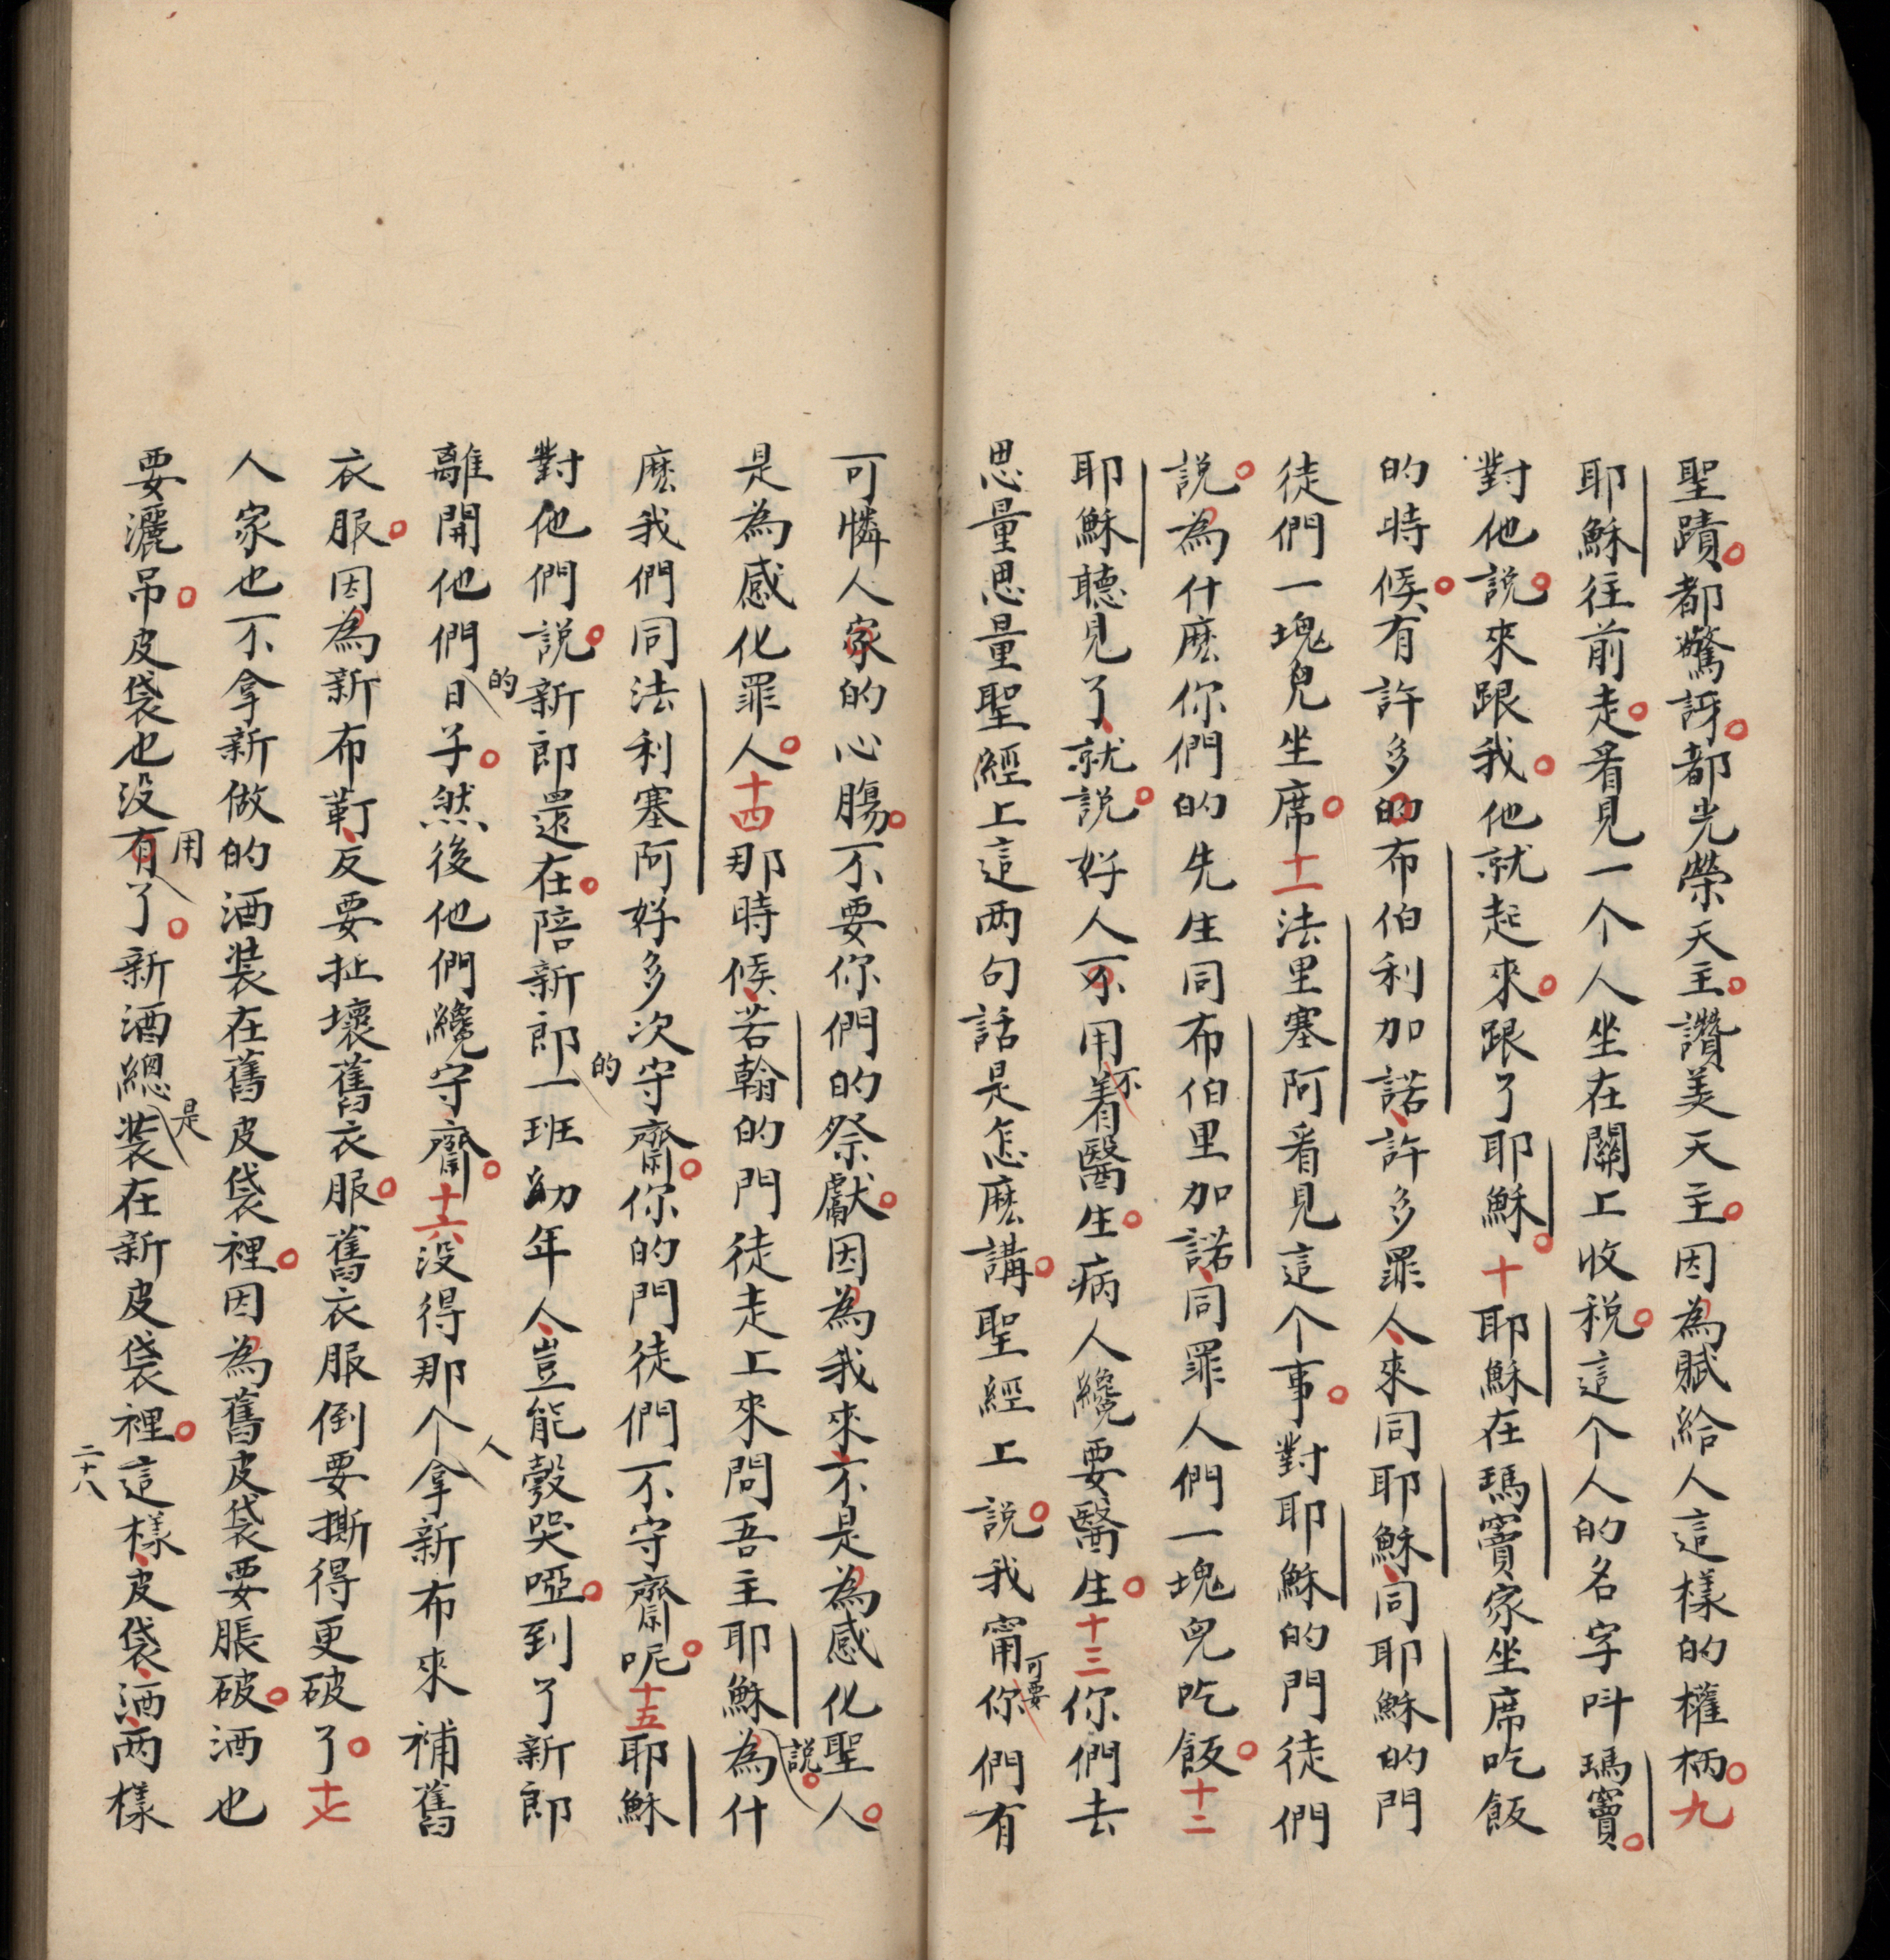 聖蹟。都驚訝。都光榮天主。讚美天主。因為賦給人這樣的權柄。九
耶穌往前走。看見一个人坐在關上收稅。這个人的名字叫瑪竇。
對他說。來跟我。他就起來。跟了耶穌。十耶穌在瑪竇家坐席吃飯
的時候。有許多的布伯利加諾、許多罪人、來同耶穌、同耶穌的門
徒們一塊兒坐席。十一法里塞阿看見這个事。對耶穌的門徒們
說。為什麽你們的先生同布伯里加諾、同罪人們一塊兒吃飯。十二
耶穌聽見了、就說。好人不用着不醫生。病人纔要醫生。十三你們去
思量思量聖經上這兩句話是怎麽講。聖經上說。我甯可要你們有
可憐人家的心腸。不要你們的祭獻。因為我來、不是為感化聖人。
是為感化罪人。十四那時候、若翰的門徒走上來問吾主耶穌說。為什
麽我們同法利塞阿好多次守的齋。你的門徒們不守齋呢。十五耶穌
對他們說。新郎還在。陪新郎一班幼年人、豈能彀哭啞。到了新郎
離開他們的日子。然後他們纔守齋。十六没得那个人拿新布來補舊
衣服。因為新布靪、反要扯壞舊衣服。舊衣服倒要撕得更破了。十七
人家也不拿新做的酒裝在舊皮袋裡。因為舊皮袋要脹破。酒也
要灑吊。皮袋也没有用了。新酒總是裝在新皮袋裡。這樣、皮袋、酒、兩樣
二十八